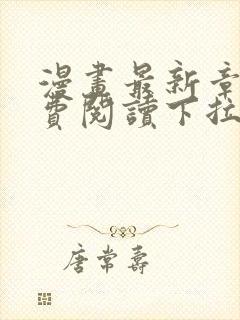 漫畫最新章
費閱讀下拉
唐常壽